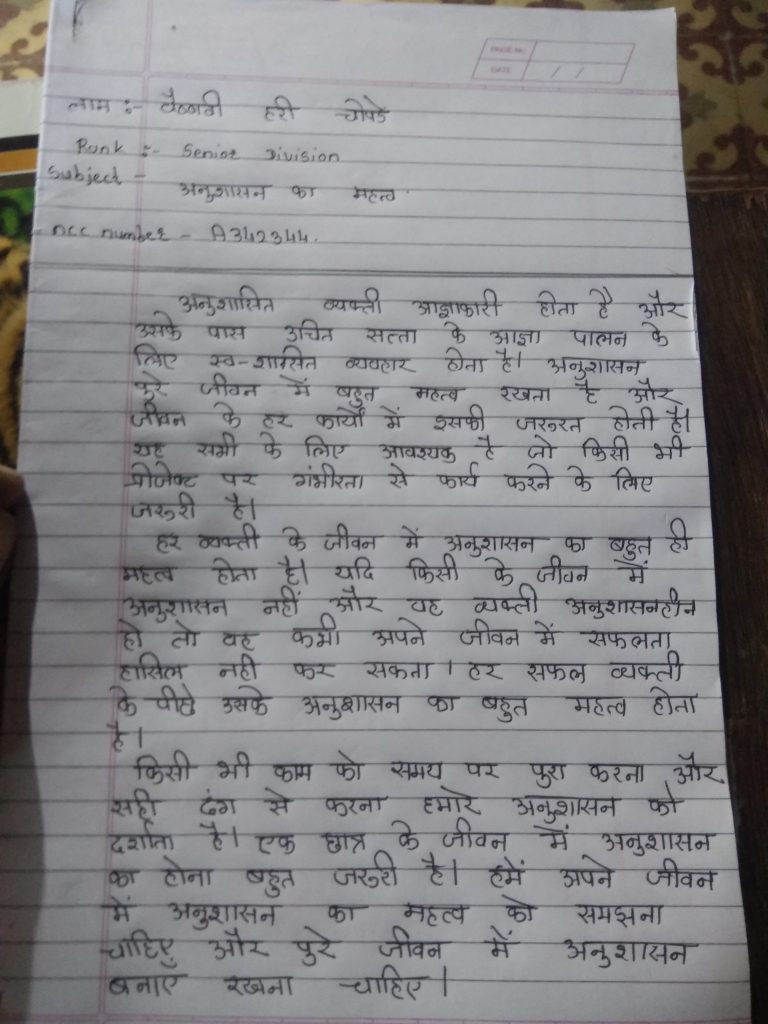 PAGE NO.
DATE / /
नाम :- वैष्णवी हरी चोपडे
Runk :- Senior Division
Subject -
अनुशासन का महत्व
ncc number - A342344.
अनुशासित व्यक्ती आज्ञाकारी होता है और
उसके पास उचित सत्ता के आज्ञा पालन के
लिए स्व-शासित व्यवहार होता है। अनुशासन
पुरे जीवन में बहुत महत्व रखता है और
जीवन के हर कार्यों में इसकी जरुरत होती है।
यह सभी के लिए आवश्यक है जो किसी भी
प्रोजेक्ट पर गंभीरता से कार्य करने के लिए
जरुरी है।
हर व्यक्ती के जीवन में अनुशासन का बहुत ही
महत्व होता है। यदि किसी के जीवन में
अनुशासन नहीं और वह व्यक्ती अनुशासनहीन
हो तो वह कभी अपने जीवन में सफलता
हासिल नही कर सकता। हर सफल व्यक्ती
के पीछे उसके अनुशासन का बहुत महत्व होता
है।
किसी भी काम को समय पर पुरा करना और
सही ढंग से करना हमारे अनुशासन को
दर्शाता है। एक छात्र के जीवन में अनुशासन
का होना बहुत जरुरी है। हमें अपने जीवन
में अनुशासन का महत्व को समझना
चाहिए और पुरे जीवन में अनुशासन
बनाए रखना चाहिए।